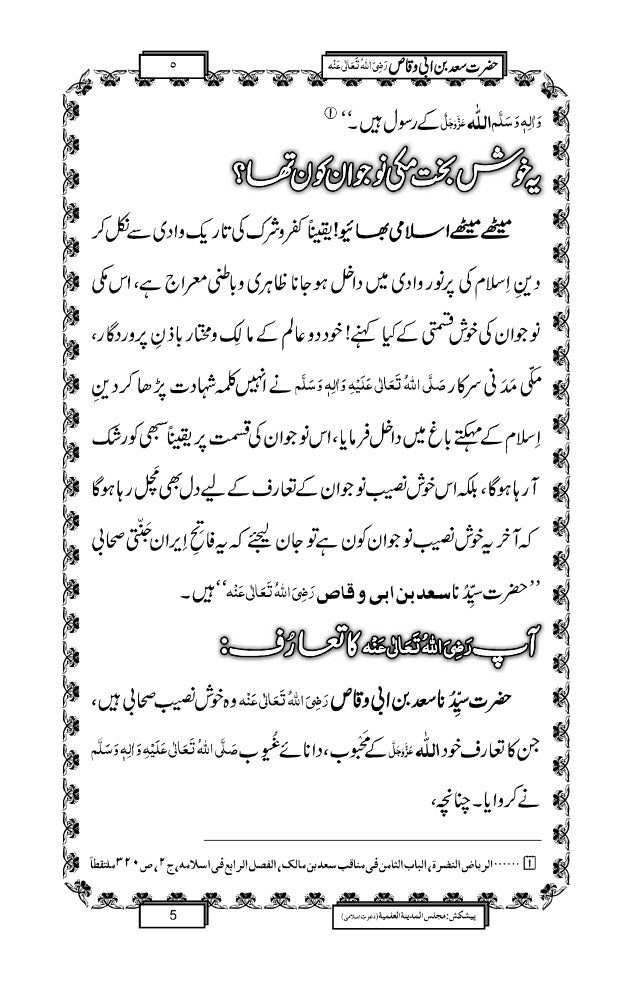 حضرت سعد بن ابی وقاص رَضِیَ اللہُ تَعَالٰی عَنْہ
۵
وَاٰلِہٖ وَسَلَّم اللہ عَزَّوَجَلَّ کے رسول ہیں۔‘‘ ①
یہ خوش بخت مکی نوجوان کون تھا؟
میٹھے میٹھے اسلامی بھائیو! یقیناً کفر و شرک کی تاریک وادی سے نکل کر
دینِ اِسلام کی پرنور وادی میں داخل ہو جانا ظاہری و باطنی معراج ہے، اس مکی
نوجوان کی خوش قسمتی کے کیا کہنے! خود دو عالم کے مالِک و مختار باذنِ پروردگار،
مکّی مَدَنی سرکار صَلَّی اللہُ تَعَالٰی عَلَیْہِ وَاٰلِہٖ وَسَلَّم نے انہیں کلمہ شہادت پڑھا کر دینِ
اِسلام کے مہکتے باغ میں داخل فرمایا، اس نوجوان کی قسمت پر یقیناً سبھی کو رشک
آ رہا ہوگا، بلکہ اس خوش نصیب نوجوان کے تعارف کے لیے دل بھی مَچل رہا ہوگا
کہ آخر یہ خوش نصیب نوجوان کون ہے تو جان لیجئے کہ یہ فاتحِ اِیران جَنّتی صحابی
’’حضرت سیِّدُنا سعد بن ابی وقاص رَضِیَ اللہُ تَعَالٰی عَنْہ‘‘ ہیں۔
آپ رَضِیَ اللہُ تَعَالٰی عَنْہ کا تعارُف:
حضرت سیِّدُنا سعد بن ابی وقاص رَضِیَ اللہُ تَعَالٰی عَنْہ وہ خوش نصیب صحابی ہیں،
جن کا تعارف خود اللہ عَزَّوَجَلَّ کے مَحْبُوب، دانائے غُیوب صَلَّی اللہُ تَعَالٰی عَلَیْہِ وَاٰلِہٖ وَسَلَّم
نے کروایا۔ چنانچہ،
۱ ...... الریاض النضرة، الباب الثامن فی مناقب سعد بن مالک، الفصل الرابع فی اسلامہ، ج۲، ص۳۲۰ ملتقطاً
پیشکش: مجلس المدینۃ العلمیۃ (دعوتِ اسلامی)
5